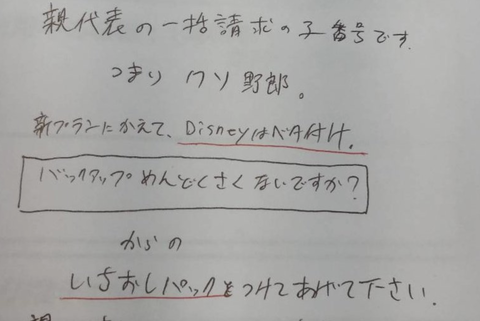 親代表の一括請求の子番号です.
つまり クソ野郎。
新プランにかえて、Disneyはベタ付け.
バックアップめんどくさくないですか?
からの
いちおしパックをつけてあげて下さい.